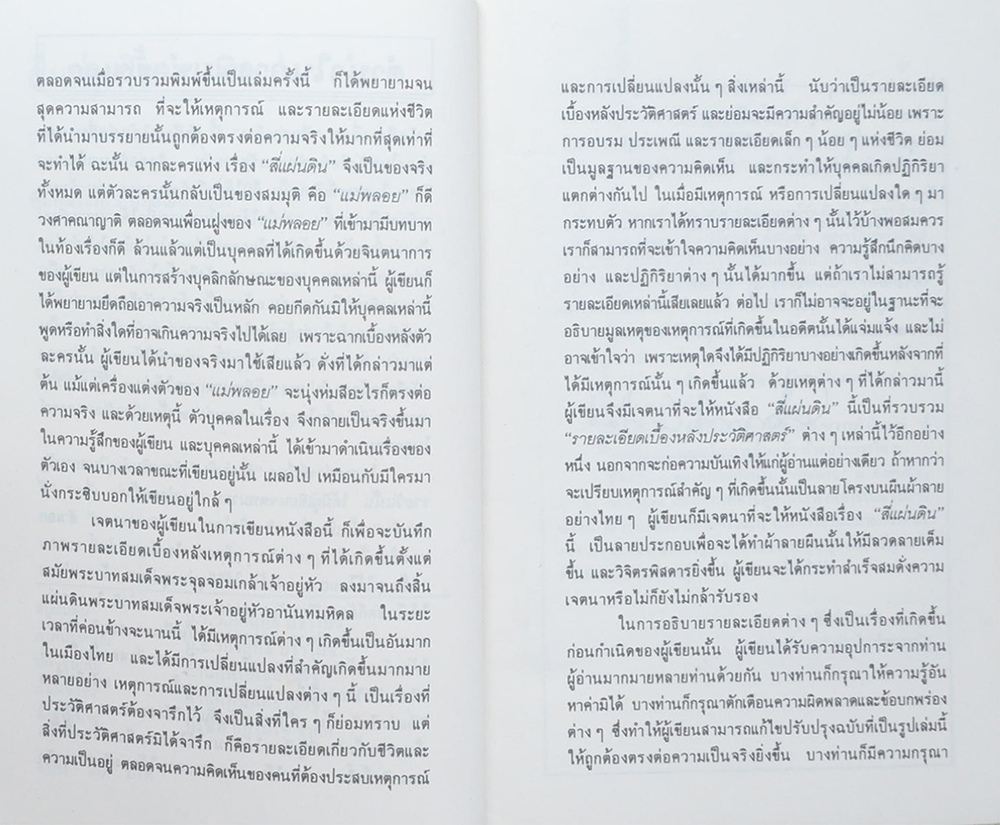 ตลอดจนเมื่อรวบรวมพิมพ์ขึ้นเป็นเล่มครั้งนี้ ก็ได้พยายามจน
สุดความสามารถ ที่จะให้เหตุการณ์ และรายละเอียดแห่งชีวิต
ที่ได้นำมาบรรยายนั้นถูกต้องตรงต่อความจริงให้มากที่สุดเท่าที่
จะทำได้ ฉะนั้น ฉากละครแห่ง เรื่อง “สี่แผ่นดิน” จึงเป็นของจริง
ทั้งหมด แต่ตัวละครนั้นกลับเป็นของสมมุติ คือ “แม่พลอย” ก็ดี
วงศาคณาญาติ ตลอดจนเพื่อนฝูงของ “แม่พลอย” ที่เข้ามามีบทบาท
ในท้องเรื่องก็ดี ล้วนแล้วแต่เป็นบุคคลที่ได้เกิดขึ้นด้วยจินตนาการ
ของผู้เขียน แต่ในการสร้างบุคลิกลักษณะของบุคคลเหล่านี้ ผู้เขียนก็
ได้พยายามยึดถือเอาความจริงเป็นหลัก คอยกีดกันมิให้บุคคลเหล่านี้
พูดหรือทำสิ่งใดที่อาจเกินความจริงไปได้เลย เพราะฉากเบื้องหลังตัว
ละครนั้น ผู้เขียนได้นำของจริงมาใช้เสียแล้ว ดั่งที่ได้กล่าวมาแต่
ต้น แม้แต่เครื่องแต่งตัวของ “แม่พลอย” จะนุ่งห่มสีอะไรก็ตรงต่อ
ความจริง และด้วยเหตุนี้ ตัวบุคคลในเรื่อง จึงกลายเป็นจริงขึ้นมา
ในความรู้สึกของผู้เขียน และบุคคลเหล่านี้ ได้เข้ามาดำเนินเรื่องของ
ตัวเอง จนบางเวลาขณะที่เขียนอยู่นั้น เผลอไป เหมือนกับมีใครมา
นั่งกระซิบบอกให้เขียนอยู่ใกล้ ๆ
เจตนาของผู้เขียนในการเขียนหนังสือนี้ ก็เพื่อจะบันทึก
ภาพรายละเอียดเบื้องหลังเหตุการณ์ต่าง ๆ ที่ได้เกิดขึ้นตั้งแต่
สมัยพระบาทสมเด็จพระจุลจอมเกล้าเจ้าอยู่หัว ลงมาจนถึงสิ้น
แผ่นดินพระบาทสมเด็จพระเจ้าอยู่หัวอานันทมหิดล ในระยะ
เวลาที่ค่อนข้างจะนานนี้ ได้มีเหตุการณ์ต่าง ๆ เกิดขึ้นเป็นอันมาก
ในเมืองไทย และได้มีการเปลี่ยนแปลงที่สำคัญเกิดขึ้นมากมาย
หลายอย่าง เหตุการณ์และการเปลี่ยนแปลงต่าง ๆ นี้ เป็นเรื่องที่
ประวัติศาสตร์ต้องจารึกไว้ จึงเป็นสิ่งที่ใคร ๆ ก็ย่อมทราบ แต่
สิ่งที่ประวัติศาสตร์มิได้จารึก ก็คือรายละเอียดเกี่ยวกับชีวิตและ
ความเป็นอยู่ ตลอดจนความคิดเห็นของคนที่ต้องประสบเหตุการณ์
และการเปลี่ยนแปลงนั้น ๆ สิ่งเหล่านี้ นับว่าเป็นรายละเอียด
เบื้องหลังประวัติศาสตร์ และย่อมจะมีความสำคัญอยู่ไม่น้อย เพราะ
การอบรม ประเพณี และรายละเอียดเล็ก ๆ น้อย ๆ แห่งชีวิต ย่อม
เป็นมูลฐานของความคิดเห็น และกระทำให้บุคคลเกิดปฏิกิริยา
แตกต่างกันไป ในเมื่อมีเหตุการณ์ หรือการเปลี่ยนแปลงใด ๆ มา
กระทบตัว หากเราได้ทราบรายละเอียดต่าง ๆ นั้นไว้บ้างพอสมควร
เราก็สามารถที่จะเข้าใจความคิดเห็นบางอย่าง ความรู้สึกนึกคิดบาง
อย่าง และปฏิกิริยาต่างๆ นั้นได้มากขึ้น แต่ถ้าเราไม่สามารถรู้
รายละเอียดเหล่านี้เสียเลยแล้ว ต่อไป เราก็ไม่อาจจะอยู่ในฐานะที่จะ
อธิบายมูลเหตุของเหตุการณ์ที่เกิดขึ้นในอดีตนั้นได้แจ่มแจ้ง และไม่
อาจเข้าใจว่า เพราะเหตุใดจึงได้มีปฏิกิริยาบางอย่างเกิดขึ้นหลังจากที่
ได้มีเหตุการณ์นั้น ๆ เกิดขึ้นแล้ว ด้วยเหตุต่าง ๆ ที่ได้กล่าวมานี้
ผู้เขียนจึงมีเจตนาที่จะให้หนังสือ “สี่แผ่นดิน” นี้เป็นที่รวบรวม
“รายละเอียดเบื้องหลังประวัติศาสตร์” ต่าง ๆ เหล่านี้ไว้อีกอย่าง
หนึ่ง นอกจากจะก่อความบันเทิงให้แก่ผู้อ่านแต่อย่างเดียว ถ้าหากว่า
จะเปรียบเหตุการณ์สำคัญ ๆ ที่เกิดขึ้นนั้นเป็นลายโครงบนผืนผ้าลาย
อย่างไทย ๆ ผู้เขียนก็มีเจตนาที่จะให้หนังสือเรื่อง “สี่แผ่นดิน”
นี้ เป็นลายประกอบเพื่อจะได้ทำผ้าลายผืนนั้นให้มีลวดลายเต็ม
ขึ้น และวิจิตรพิสดารยิ่งขึ้น ผู้เขียนจะได้กระทำสำเร็จสมดั่งความ
เจตนาหรือไม่ก็ยังไม่กล้ารับรอง
ในการอธิบายรายละเอียดต่าง ๆ ซึ่งเป็นเรื่องที่เกิดขึ้น
ก่อนกำเนิดของผู้เขียนนั้น ผู้เขียนได้รับความอุปการะจากท่าน
ผู้อ่านมากมายหลายท่านด้วยกัน บางท่านก็กรุณาให้ความรู้อัน
หาค่ามิได้ บางท่านก็กรุณาตักเตือนความผิดพลาดและข้อบกพร่อง
ต่าง ๆ ซึ่งทำให้ผู้เขียนสามารถแก้ไขปรับปรุงฉบับที่เป็นรูปเล่มนี้
ให้ถูกต้องตรงต่อความเป็นจริงยิ่งขึ้น บางท่านก็มีความกรุณา